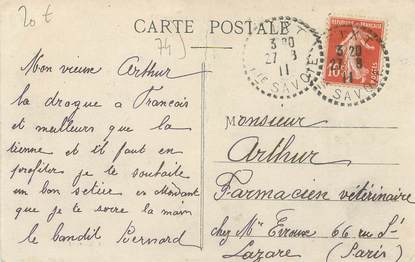 20 t
CARTE POSTALE
74
3 20
27 - 8
11
Hte SAVOIE
10
3 20
27 - 8
11
Hte SAVOIE
Mon vieux Arthur
la drogue a Francois
et meilleurs que la
tienne et il faut en
profiter je te souhaite
un bon
en attendant
que je te serre la main
le bandit Bernard
Monsieur
Arthur
Farmacien vétérinaire
chez Mr 66 rue St
Lazare (Paris)